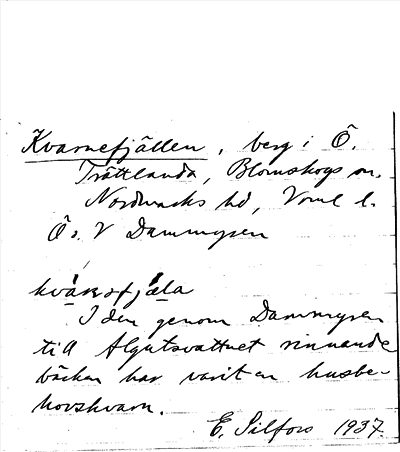 Kvarnefjällen, berg i Ö.
Trättlanda, Blomskogs sn.
Nordmarks hd, Vrml l.
Ö o. V Dammysen
kvá̱rnəfjæ̀la
I den genom Dammyren
till Algutsvattnet rinnande
bäcken har varit en husbe-
hovskvarn.
E. Silfors 1937.